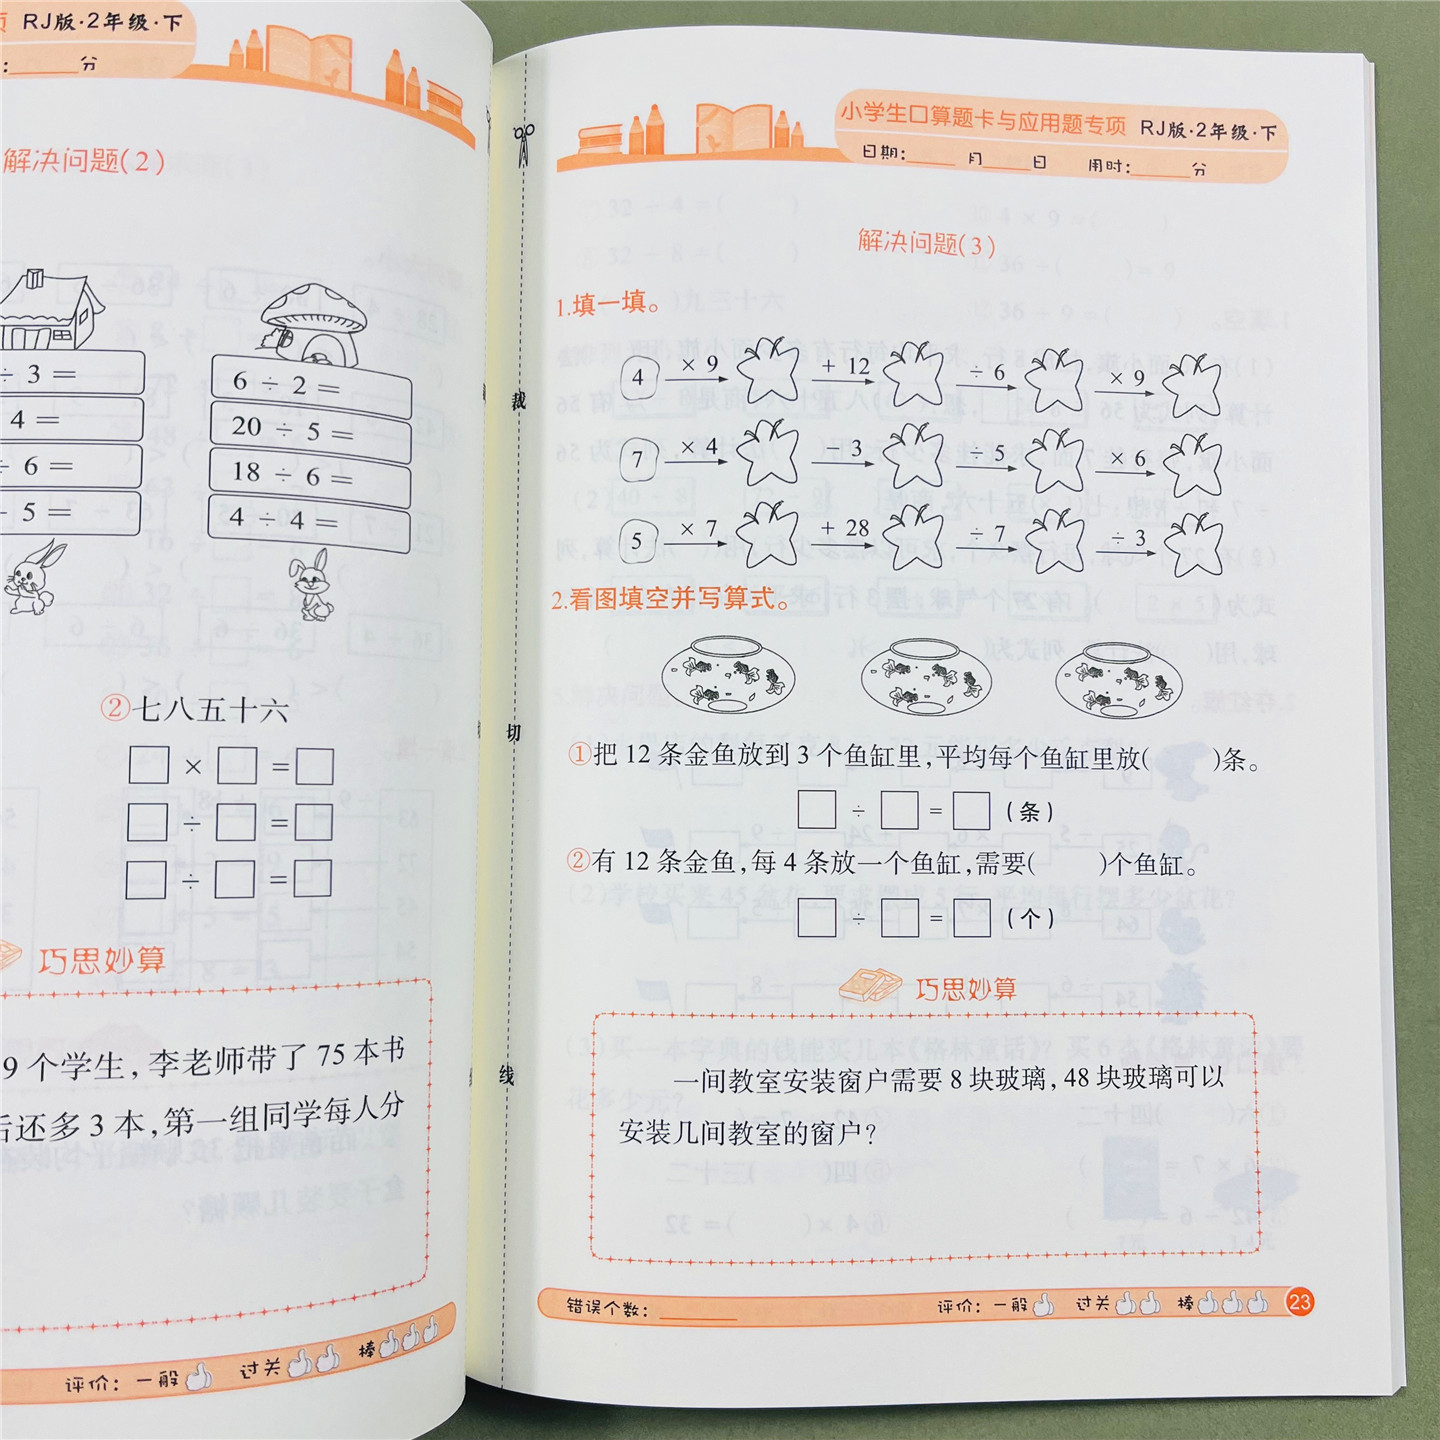 RJ版·2年级·下
:______分
解决问题(2)
÷ 3 =
4 =
÷ 6 =
÷ 5 =
6 ÷ 2 =
20 ÷ 5 =
18 ÷ 6 =
4 ÷ 4 =
②七八五十六
□ × □ = □
□ ÷ □ = □
□ ÷ □ = □
巧思妙算
9个学生，李老师带了75本书
后还多3本，第一组同学每人分
评价：一般 过关 棒
裁
切
线
小学生口算题卡与应用题专项 RJ版·2年级·下
日期:____月____日 用时:_____分
解决问题(3)
1.填一填。
4 × 9 + 12 ÷ 6 × 9
7 × 4 − 3 ÷ 5 × 6
5 × 7 + 28 ÷ 7 ÷ 3
2.看图填空并写算式。
①把12条金鱼放到3个鱼缸里，平均每个鱼缸里放( )条。
□ ÷ □ = □ (条)
②有12条金鱼，每4条放一个鱼缸，需要( )个鱼缸。
□ ÷ □ = □ (个)
巧思妙算
一间教室安装窗户需要8块玻璃，48块玻璃可以
安装几间教室的窗户？
错误个数：______ 评价：一般 过关 棒 23